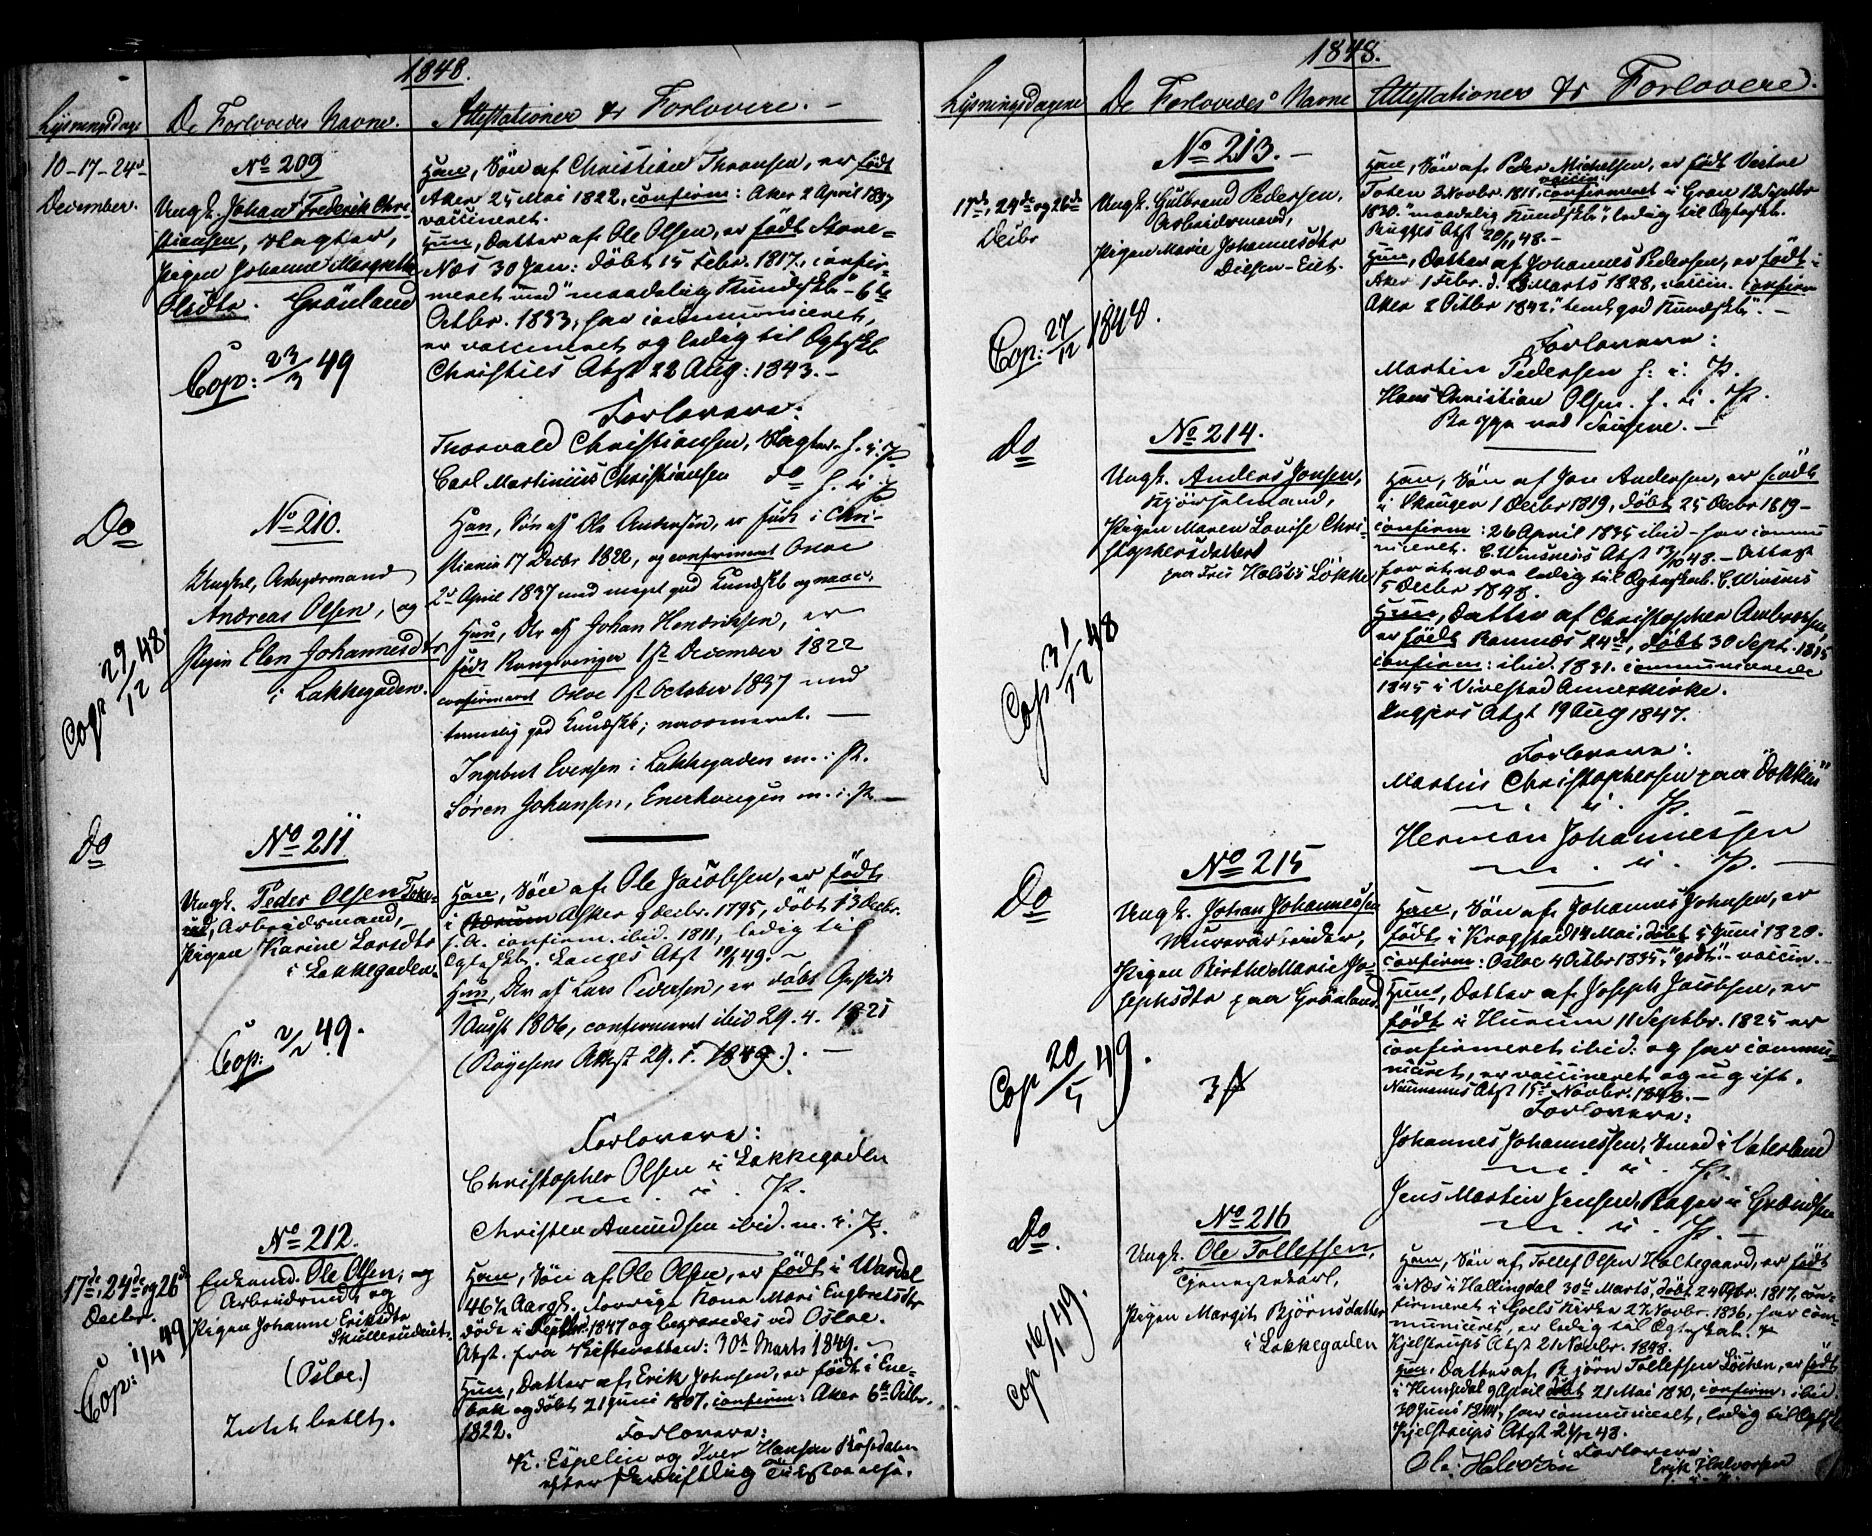 1848.
Lysningsdage
De Forlovedes Navne.
Attestationer & Forlovere. —
10-17-24de
December.
No 209
Ungk. Johan Frederik Chri-
stiansen, Slagter,
Pigen Johanne Margrethe
Olsdtr. Grönland
Cop: 23/3 49
Han, Sön af Christian Thoresen, er födt
Aker 25 Mai 1822, confirm: Aker 2 April 1837
vaccineret.
Hun, Datter af Ole Olsen, er födt
Næs 30 Jan: döbt 15 Febr. 1817, confir-
meret med "maadelig Kundskb" 6te
Octbr. 1833, har communiceret,
er vaccineret og ledig til Ægteskb
Christies Atst 22 Aug: 1843. —
Forlovere:
Thorvald Christiansen, Slagter
Carl Martinius Christiansen do
Do
No 210.
Ungkl, Arbejdsmand
Andreas Olsen, og
Pigen Elen Johannesdtr
i Lakkegaden.
Cop 29/12 48.
Han, Søn af Ole Andersen, er født i Chri-
stiania 17 Decbr 1822, og confirmeret Osloe
2 April 1837 med meget god Kundskb og vacc.
Hun, Dtr af Johan Hendriksen, er
født Kongsvinger 1st December 1822
confirmeret Osloe 1st October 1837 med
temmelig god Kundskb; vaccineret. —
Ingebret Evensen i Lakkegaden m. i. P.
Søren Johansen, Enerhaugen m. i. P.
Do
No 211
Ungk. Peder Olsen
Arbeidsmand,
Pigen Karine Larsdtr
i Lakkegaden.
Cop: 2/2 49.
Han, Sön af Ole Jacobsen, er födt
i Asker 9 Decbr. 1795, döbt 13 Decbr.
s. A. confirm. ibid. 1811, ledig til
Ægteskb. Langes Atst 10/1 49. —
Hun, Dtr af Lars Pedersen, er döbt
1 August 1806, confirmeret ibid 29. 4. 1821
(Röyesens Attest 29. 1. 1849.). —
Forlovere:
Christopher Olsen i Lakkegaden
m. i. P.
Christen Amundsen ibid. m. i. P.
17de, 24de og 26de
Decbr.
No 212.
Enkemd. Ole Olsen, og
Arbeidsmd, og
Pigen Johanne Eriksdtr
(Osloe.)
Cop: 1/4 49
Han, Sön af Ole Olsen, er födt i Wardal
46½ Aargl. Forrige Kone Mari Engbretsdtr
döde i Septbr 1847 og begravedes ved Osloe.
Atst. fra Skifteretten: 30te Marts 1849. —
Hun, Datter af Erik Johnsen, er födt i Ene-
bak og döbt 21 Juni 1807, confirm: Aker 6te Octbr.
1822.
Forlovere:
K. Espelin og Iver Hansen
efter skriftlig Tilstaaelse.
1848.
Lysningsdagene
De Forlovedes Navne
Attestationer & Forlovere.
17de, 24de og 26de
Decbr
No 213. —
Ungk. Gulbrand Pedersen,
Arbeidsmand,
Pigen Marie Johannesdtr
Diesen-Eie.
Cop: 27/12 1848.
Han, Sön af Peder Michelsen, er födt Vestre
Toten 3 Novbr. 1811. vaccin. confirmeret i Gran 12 Septbr
1830. "maadelig Kundskb", ledig til Ægteskb.
Bugges Atst 20/11 48. —
Hun, Datter af Johannes Pedersen, er födt i
Aker 1 Febr. d. 23 Marts 1828, vaccin. confirm
Aker 2 Octbr 1842, "teml. god Kundskb". —
Forlovere:
Martin Pedersen
Hans Christian Olsen
Do
No 214.
Ungk. Anders Jonsen,
Kjörselmand,
Pigen Maren Lovise Chri-
stophersdatter
paa Løkke
Cop 31/12 48
Han, Sön af Jon Andersen, er födt
i Skauger 1 Decbr 1819, döbt 25 Decbr 1819 —
confirm: 26 April 1835 ibid — har commu-
niceret. C. Winsnes Atst 13/10 48 — Attest
for at være ledig til Ægteskab. C. Winsnes
5 Decbr 1848.
Hun, Datter af Christopher Ambrosen,
er födt Ramnæs 24de, döbt 30 Sept. 1815
confirm: ibid. 1831. communicerede
1845 i Vivestad Annexkirke.
Atst 19 Aug 1847.
Forlovere:
Martin Christophersen paa
m. i. P.
Herman Johannessen
m. i. P. —
Do
No 215
Ungk. Johan Johannessen
Pigen Birthe Marie Jo-
sephsdtr paa Grönland
Cop 20/5 49.
Han, Sön af Johannes Johnsen, er
födt i Krogstad 14 Mai, döbt 5 Juni 1820.
confirm: Osloe 4 Octbr 1835, "godt" — vaccin.
Hun, Datter af Joseph Jacobsen, er
födt i Hurum 11 Septbr. 1825 er
confirmeret ibid: og har commu-
niceret, er vaccineret og ugift.
Neumanns Atst 15de Novbr. 1848. —
Forlovere:
Johannes Johannessen, Smed i Vaterland
m. i. P.
Jens Martin Jensen, Bager i Grændsen
m. i. P.
Do.
No 216
Ungk. Ole Tollefsen,
Tjenestekarl,
Pigen Margit Björnsdatter
i Lakkegaden
Cop 16/1 49.
Han, Sön af Tollef Olsen Haltegaard, er födt
i Næs i Hallingdal 30te Marts, döbt 1817, con-
firmeret i Goels Kirke 27 Novbr. 1836, har com-
municeret, er ledig til Ægteskab.
Kjelstrups Atst 21 Novbr. 1848.
Hun, Datter af Björn Tollefsen Löken, er födt
i Hemsedal 9 April döbt 21 Mai 1830, confirm: ibid.
30 Juni 1844, har communiceret, ledig til Ægtskb
Kjelstrups Atst 48.
Forlovere:
Ole Halvorsen
Erik Halvorsen